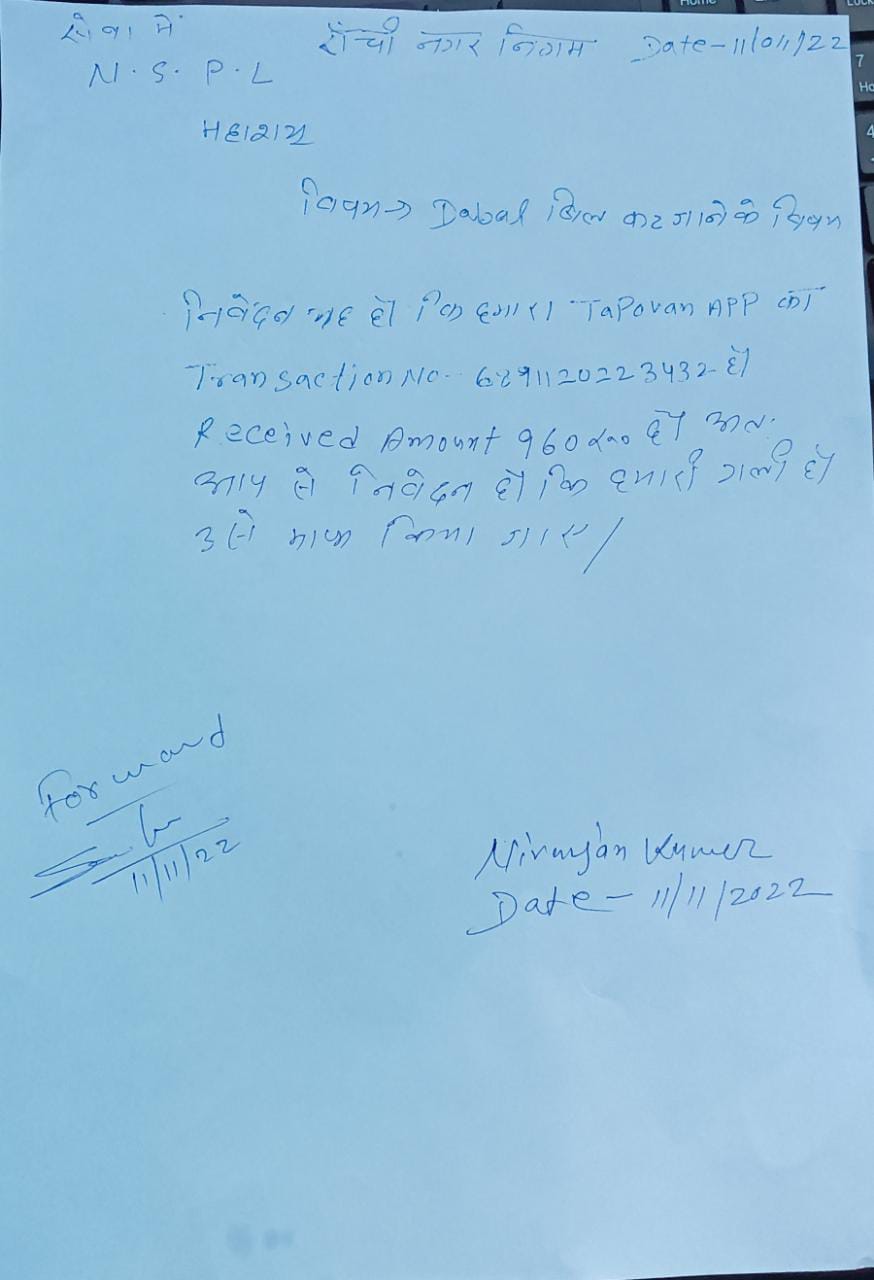 सेवा में राँची नगर निगम Date-11/011/22
N.S.P.L
महाशय
विषय→ Dabal बिल कट जाने के विषय
निवेदन यह है कि हमारा TaPovan APP का
Transaction No- 6891120223432 है
Received Amount 960 है अतः
आप से निवेदन है कि हमारी गलती है
उसे माफ किया जाए/
Forward
11/11/22
Niranjan Kumer
Date- 11/11/2022